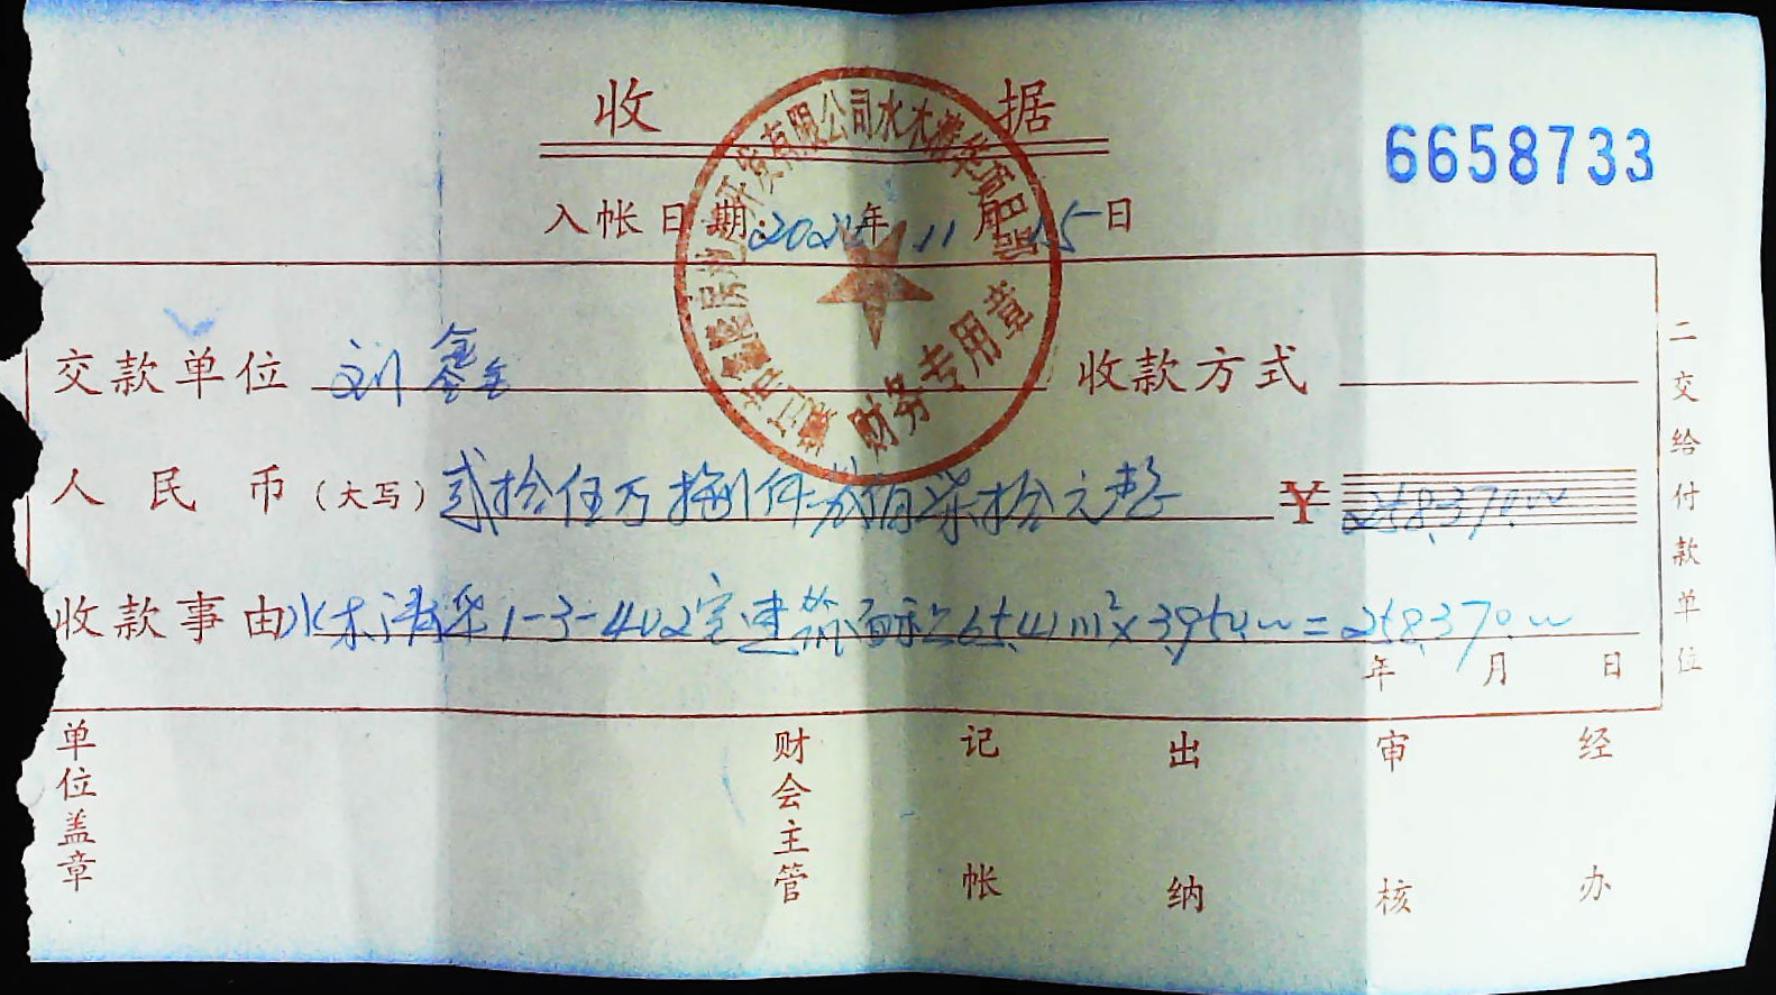 收 据
6658733
入帐日期: 年 11 月 15 日
房地产开发有限公司水木清华项目部
财务专用章
交款单位 刘鑫 收款方式
人民币（大写）贰拾伍万捌仟叁佰柒拾元整 ¥ 258,370.00
收款事由 水木清华1-3-402室建筑面积65.41m²×3,950.00=258,370.00
年 月 日
二交给付款单位
单位盖章 财会主管 记帐 出纳 审核 经办